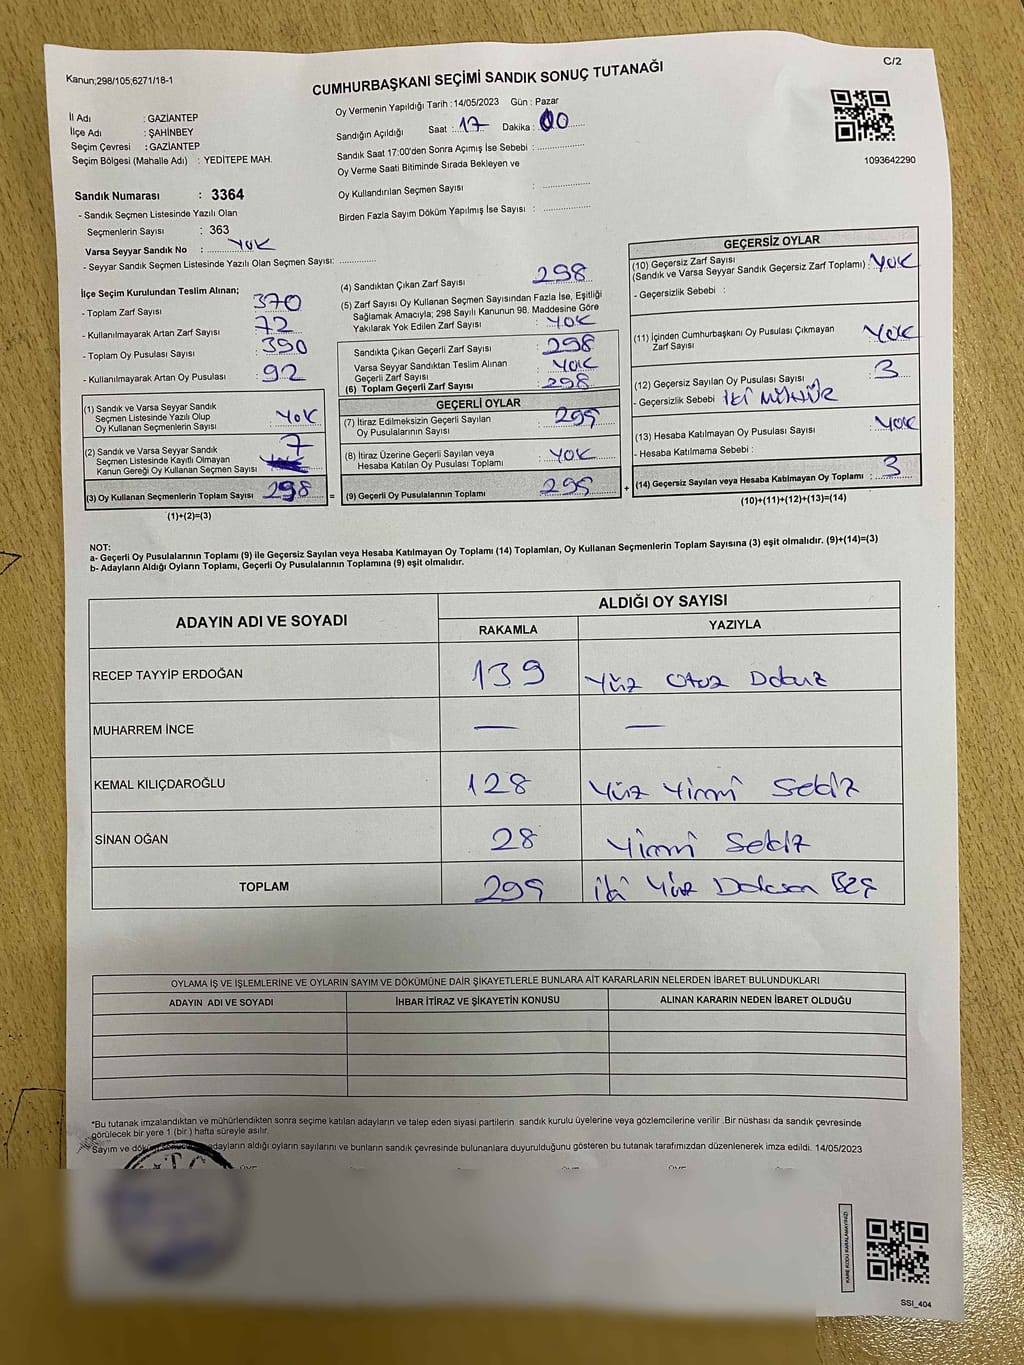 Kanun;298/105;6271/18-1
C/2
CUMHURBAŞKANI SEÇİMİ SANDIK SONUÇ TUTANAĞI
İl Adı : GAZİANTEP
İlçe Adı : ŞAHİNBEY
Seçim Çevresi : GAZİANTEP
Seçim Bölgesi (Mahalle Adı) : YEDİTEPE MAH.
Oy Vermenin Yapıldığı Tarih : 14/05/2023 Gün : Pazar
Sandığın Açıldığı Saat : 17 Dakika : 00
Sandık Saat 17:00'den Sonra Açımış İse Sebebi :
Oy Verme Saati Bitiminde Sırada Bekleyen ve
Oy Kullandırılan Seçmen Sayısı :
Birden Fazla Sayım Döküm Yapılmış İse Sayısı :
1093642290
Sandık Numarası : 3364
- Sandık Seçmen Listesinde Yazılı Olan
Seçmenlerin Sayısı : 363
Varsa Seyyar Sandık No : YOK
- Seyyar Sandık Seçmen Listesinde Yazılı Olan Seçmen Sayısı:
İlçe Seçim Kurulundan Teslim Alınan;
- Toplam Zarf Sayısı : 370
- Kullanılmayarak Artan Zarf Sayısı : 72
- Toplam Oy Pusulası Sayısı : 390
- Kullanılmayarak Artan Oy Pusulası : 92
(1) Sandık ve Varsa Seyyar Sandık
Seçmen Listesinde Yazılı Olup
Oy Kullanan Seçmenlerin Sayısı : YOK
(2) Sandık ve Varsa Seyyar Sandık
Seçmen Listesinde Kayıtlı Olmayan
Kanun Gereği Oy Kullanan Seçmen Sayısı : 7
(3) Oy Kullanan Seçmenlerin Toplam Sayısı : 298
(1)+(2)=(3)
=
(4) Sandıktan Çıkan Zarf Sayısı : 298
(5) Zarf Sayısı Oy Kullanan Seçmen Sayısından Fazla İse, Eşitliği
Sağlamak Amacıyla; 298 Sayılı Kanunun 98. Maddesine Göre
Yakılarak Yok Edilen Zarf Sayısı : YOK
Sandıkta Çıkan Geçerli Zarf Sayısı : 298
Varsa Seyyar Sandıktan Teslim Alınan
Geçerli Zarf Sayısı : YOK
(6) Toplam Geçerli Zarf Sayısı : 298
GEÇERLİ OYLAR
(7) İtiraz Edilmeksizin Geçerli Sayılan
Oy Pusulalarının Sayısı : 295
(8) İtiraz Üzerine Geçerli Sayılan veya
Hesaba Katılan Oy Pusulası Toplamı : YOK
(9) Geçerli Oy Pusulalarının Toplamı : 295
+
GEÇERSİZ OYLAR
(10) Geçersiz Zarf Sayısı
(Sandık ve Varsa Seyyar Sandık Geçersiz Zarf Toplamı) : YOK
- Geçersizlik Sebebi :
(11) İçinden Cumhurbaşkanı Oy Pusulası Çıkmayan
Zarf Sayısı : YOK
(12) Geçersiz Sayılan Oy Pusulası Sayısı : 3
- Geçersizlik Sebebi : İKİ MÜHÜR
(13) Hesaba Katılmayan Oy Pusulası Sayısı : YOK
- Hesaba Katılmama Sebebi :
(14) Geçersiz Sayılan veya Hesaba Katılmayan Oy Toplamı : 3
(10)+(11)+(12)+(13)=(14)
NOT:
a- Geçerli Oy Pusulalarının Toplamı (9) ile Geçersiz Sayılan veya Hesaba Katılmayan Oy Toplamı (14) Toplamları, Oy Kullanan Seçmenlerin Toplam Sayısına (3) eşit olmalıdır. (9)+(14)=(3)
b- Adayların Aldığı Oyların Toplamı, Geçerli Oy Pusulalarının Toplamına (9) eşit olmalıdır.
ADAYIN ADI VE SOYADI
ALDIĞI OY SAYISI
RAKAMLA YAZIYLA
RECEP TAYYİP ERDOĞAN 139 Yüz Otuz Dokuz
MUHARREM İNCE — —
KEMAL KILIÇDAROĞLU 128 Yüz Yirmi Sekiz
SİNAN OĞAN 28 Yirmi Sekiz
TOPLAM 295 İki Yüz Doksan Beş
OYLAMA İŞ VE İŞLEMLERİNE VE OYLARIN SAYIM VE DÖKÜMÜNE DAİR ŞİKAYETLERLE BUNLARA AİT KARARLARIN NELERDEN İBARET BULUNDUKLARI
ADAYIN ADI VE SOYADI İHBAR İTİRAZ VE ŞİKAYETİN KONUSU ALINAN KARARIN NEDEN İBARET OLDUĞU
*Bu tutanak imzalandıktan ve mühürlendikten sonra seçime katılan adayların ve talep eden siyasi partilerin sandık kurulu üyelerine veya gözlemcilerine verilir .Bir nüshası da sandık çevresinde
görülecek bir yere 1 (bir) hafta süreyle asılır.
*Sayım ve adayların aldığı oyların sayılarını ve bunların sandık çevresinde bulunanlara duyurulduğunu gösteren bu tutanak tarafımızdan düzenlenerek imza edildi. 14/05/2023
KARE KODU KARALAMAYINIZ!
SSI_404